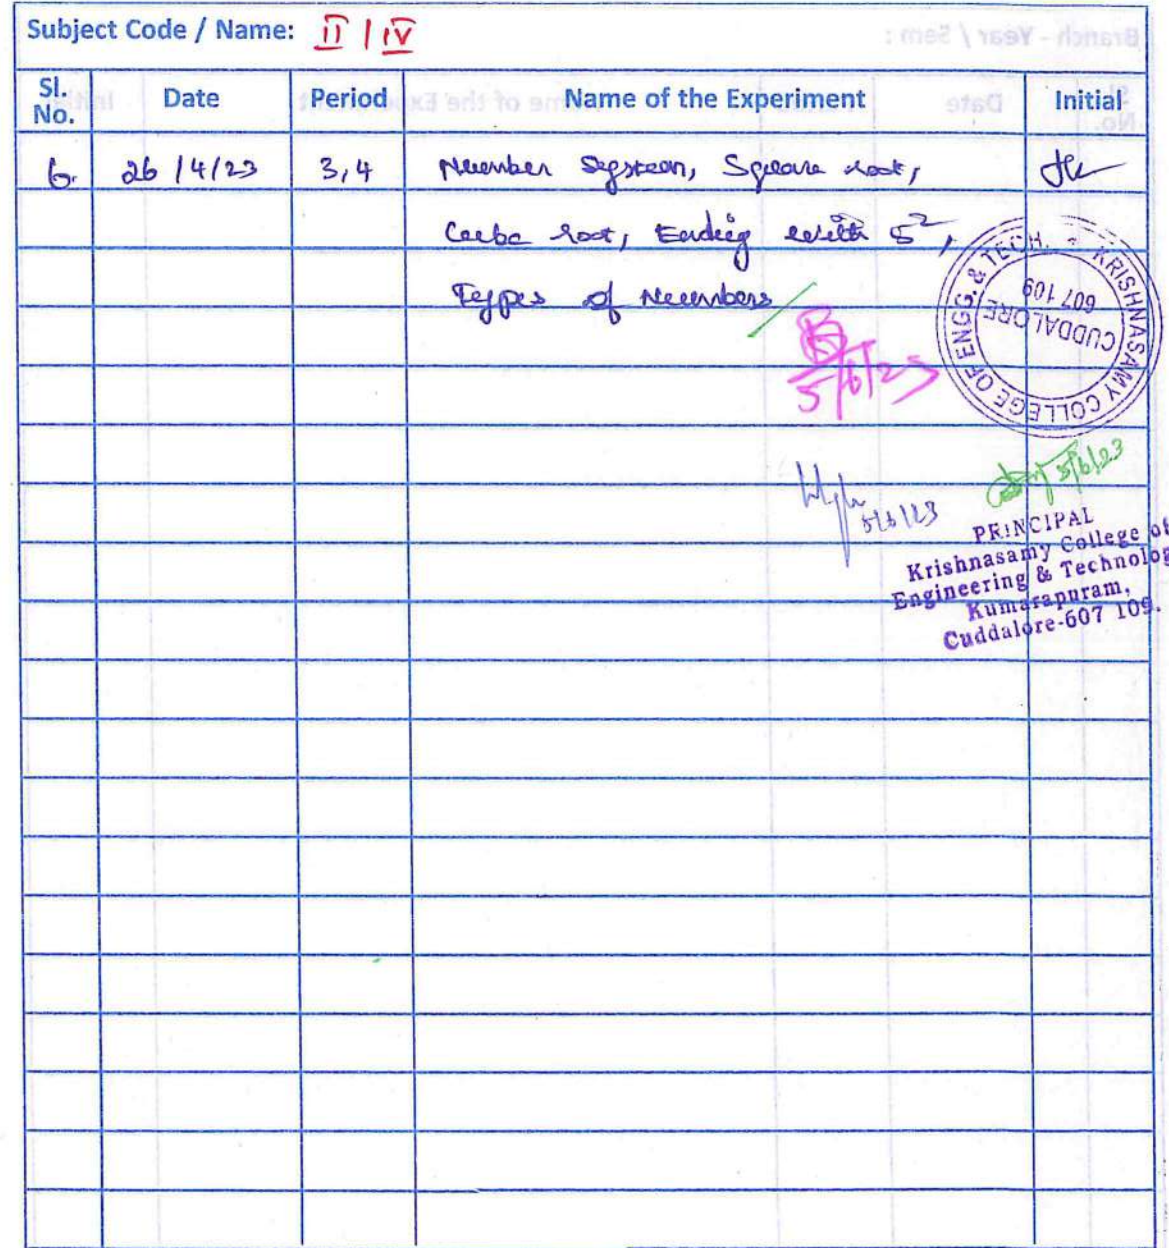 Subject Code / Name: II / IV
Sl. No. Date Period Name of the Experiment Initial
6. 26/4/23 3,4 Number System, Square root,
Cube root, Ending with 5²,
Types of Numbers
5/6/23
KRISHNASAMY COLLEGE OF ENGG. & TECH.
CUDDALORE
607 109
5/6/23
5/6/23
PRINCIPAL
Krishnasamy College of
Engineering & Technolog
Kumarapuram,
Cuddalore-607 109.